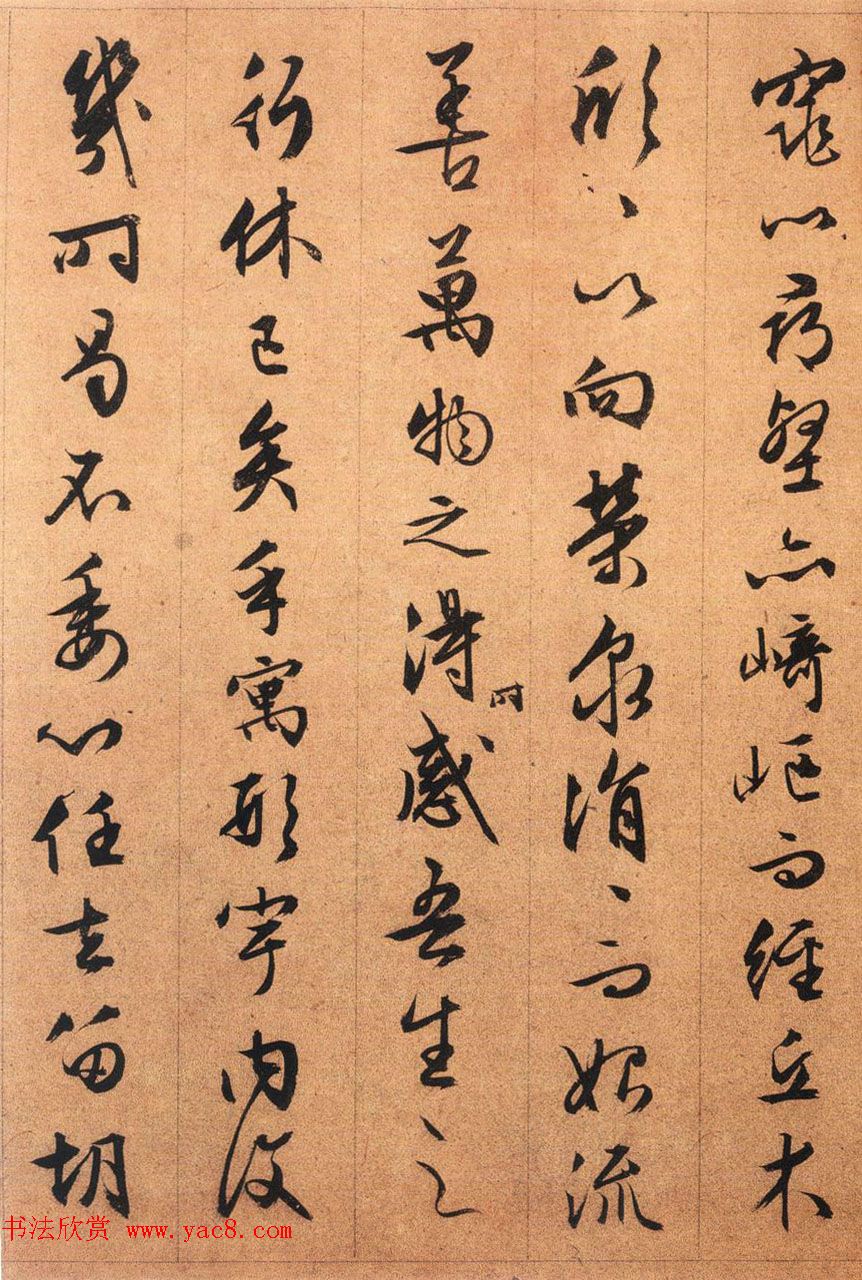 窕以尋壑亦崎嶇而經丘木
欣々以向榮泉涓々而始流
善萬物之得時感吾生之
行休已矣乎寓形宇內復
幾時曷不委心任去留胡
书法欣赏 www.yac8.com